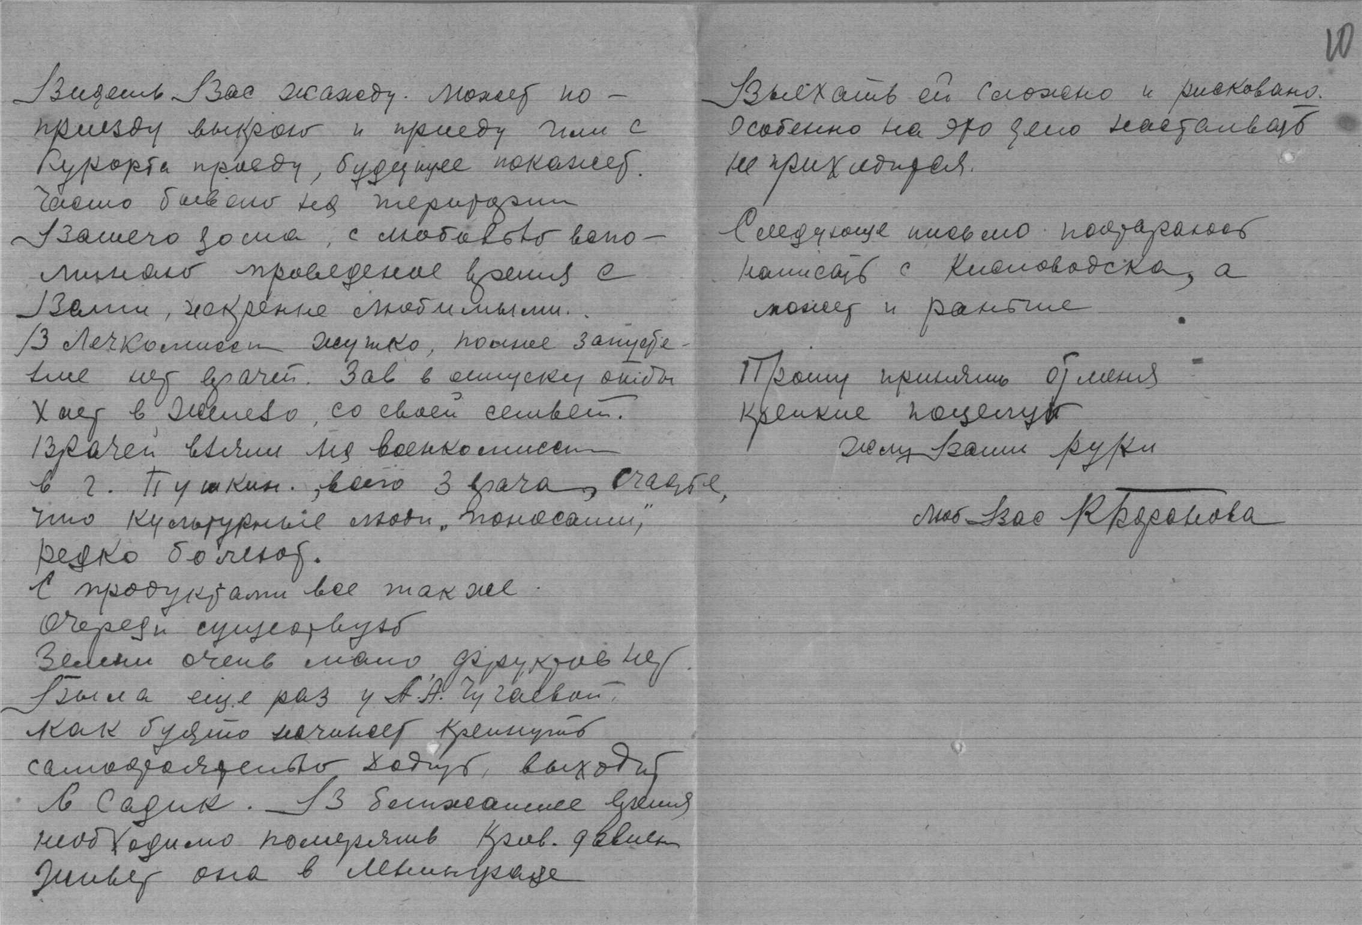 Видеть Вас жажду. Может по-
приезду выкрою и приеду или с
Курорта приеду, будующее покажет.
Часто бываю на територии
Вашего дома, с любовью вспо-
минаю проведеное время с
Вами, искренне любимыми.
В Лечкомиссии жутко, полное запусте-
ние нет врачей. Зав в отпуску отды
хает в, со своей семьей.
Врачей взяли на военкомиссии
в г. Пушкин., всего 3 врача, счастье,
что культурные люди „поносами",
редко болеют.
С продуктами все также.
Очереди существуют
Зелени очень мало, фруктов нет.
Была еще раз у А.А. Чугаевой.
как будто начинает крепнуть
самостоятельно ходит, выходит
в садик. В ближайшее время
необходимо померять кров. давлен
Живет она в Ленинграде
10
Выехать ей сложно и рисковано.
Особенно на это дело настаивать
не приходится.
Следующе письмо постараюсь
написать с Кисловодска, а
может и раньше
Прошу принять от меня
крепкие поцелуи
жму Ваши руки
люб Вас К Баранова